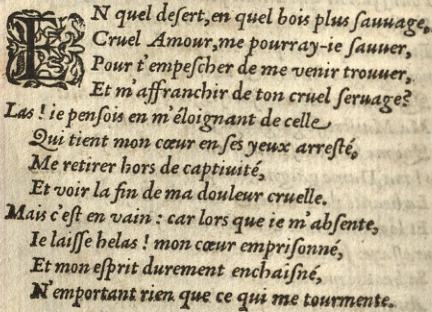 EN quel deſert, en quel bois plus ſauuage,
Cruel Amour, me pourray-ie ſauuer,
Pour t'empeſcher de me venir trouuer,
Et m'affranchir de ton cruel ſeruage?
Las! ie penſois en m'éloignant de celle
Qui tient mon cœur en ſes yeux arreſté,
Me retirer hors de captiuité,
Et voir la fin de ma douleur cruelle.
Mais c'eſt en vain: car lors que ie m'abſente,
Ie laiſſe helas! mon cœur empriſonné,
Et mon eſprit durement enchaiſné,
N'emportant rien que ce qui me tourmente.